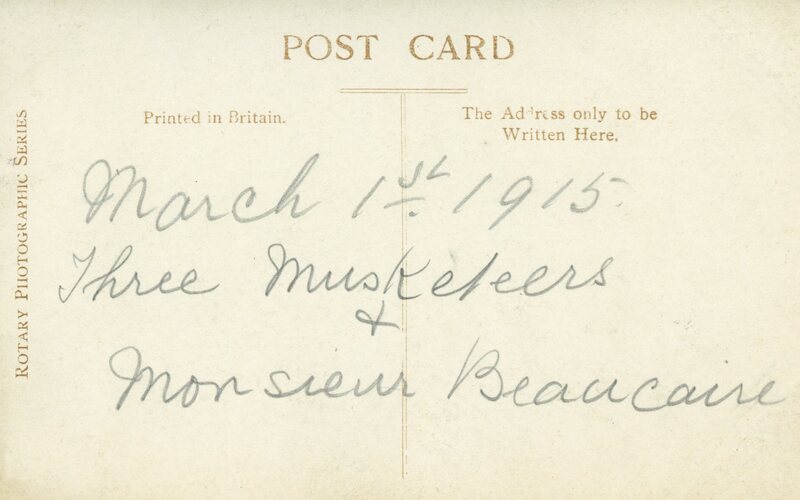 POST CARD
Printed in Britain.
The Address only to be
Written Here.
ROTARY PHOTOGRAPHIC SERIES
March 1st 1915.
Three Musketeers
&
Monsieur Beaucaire